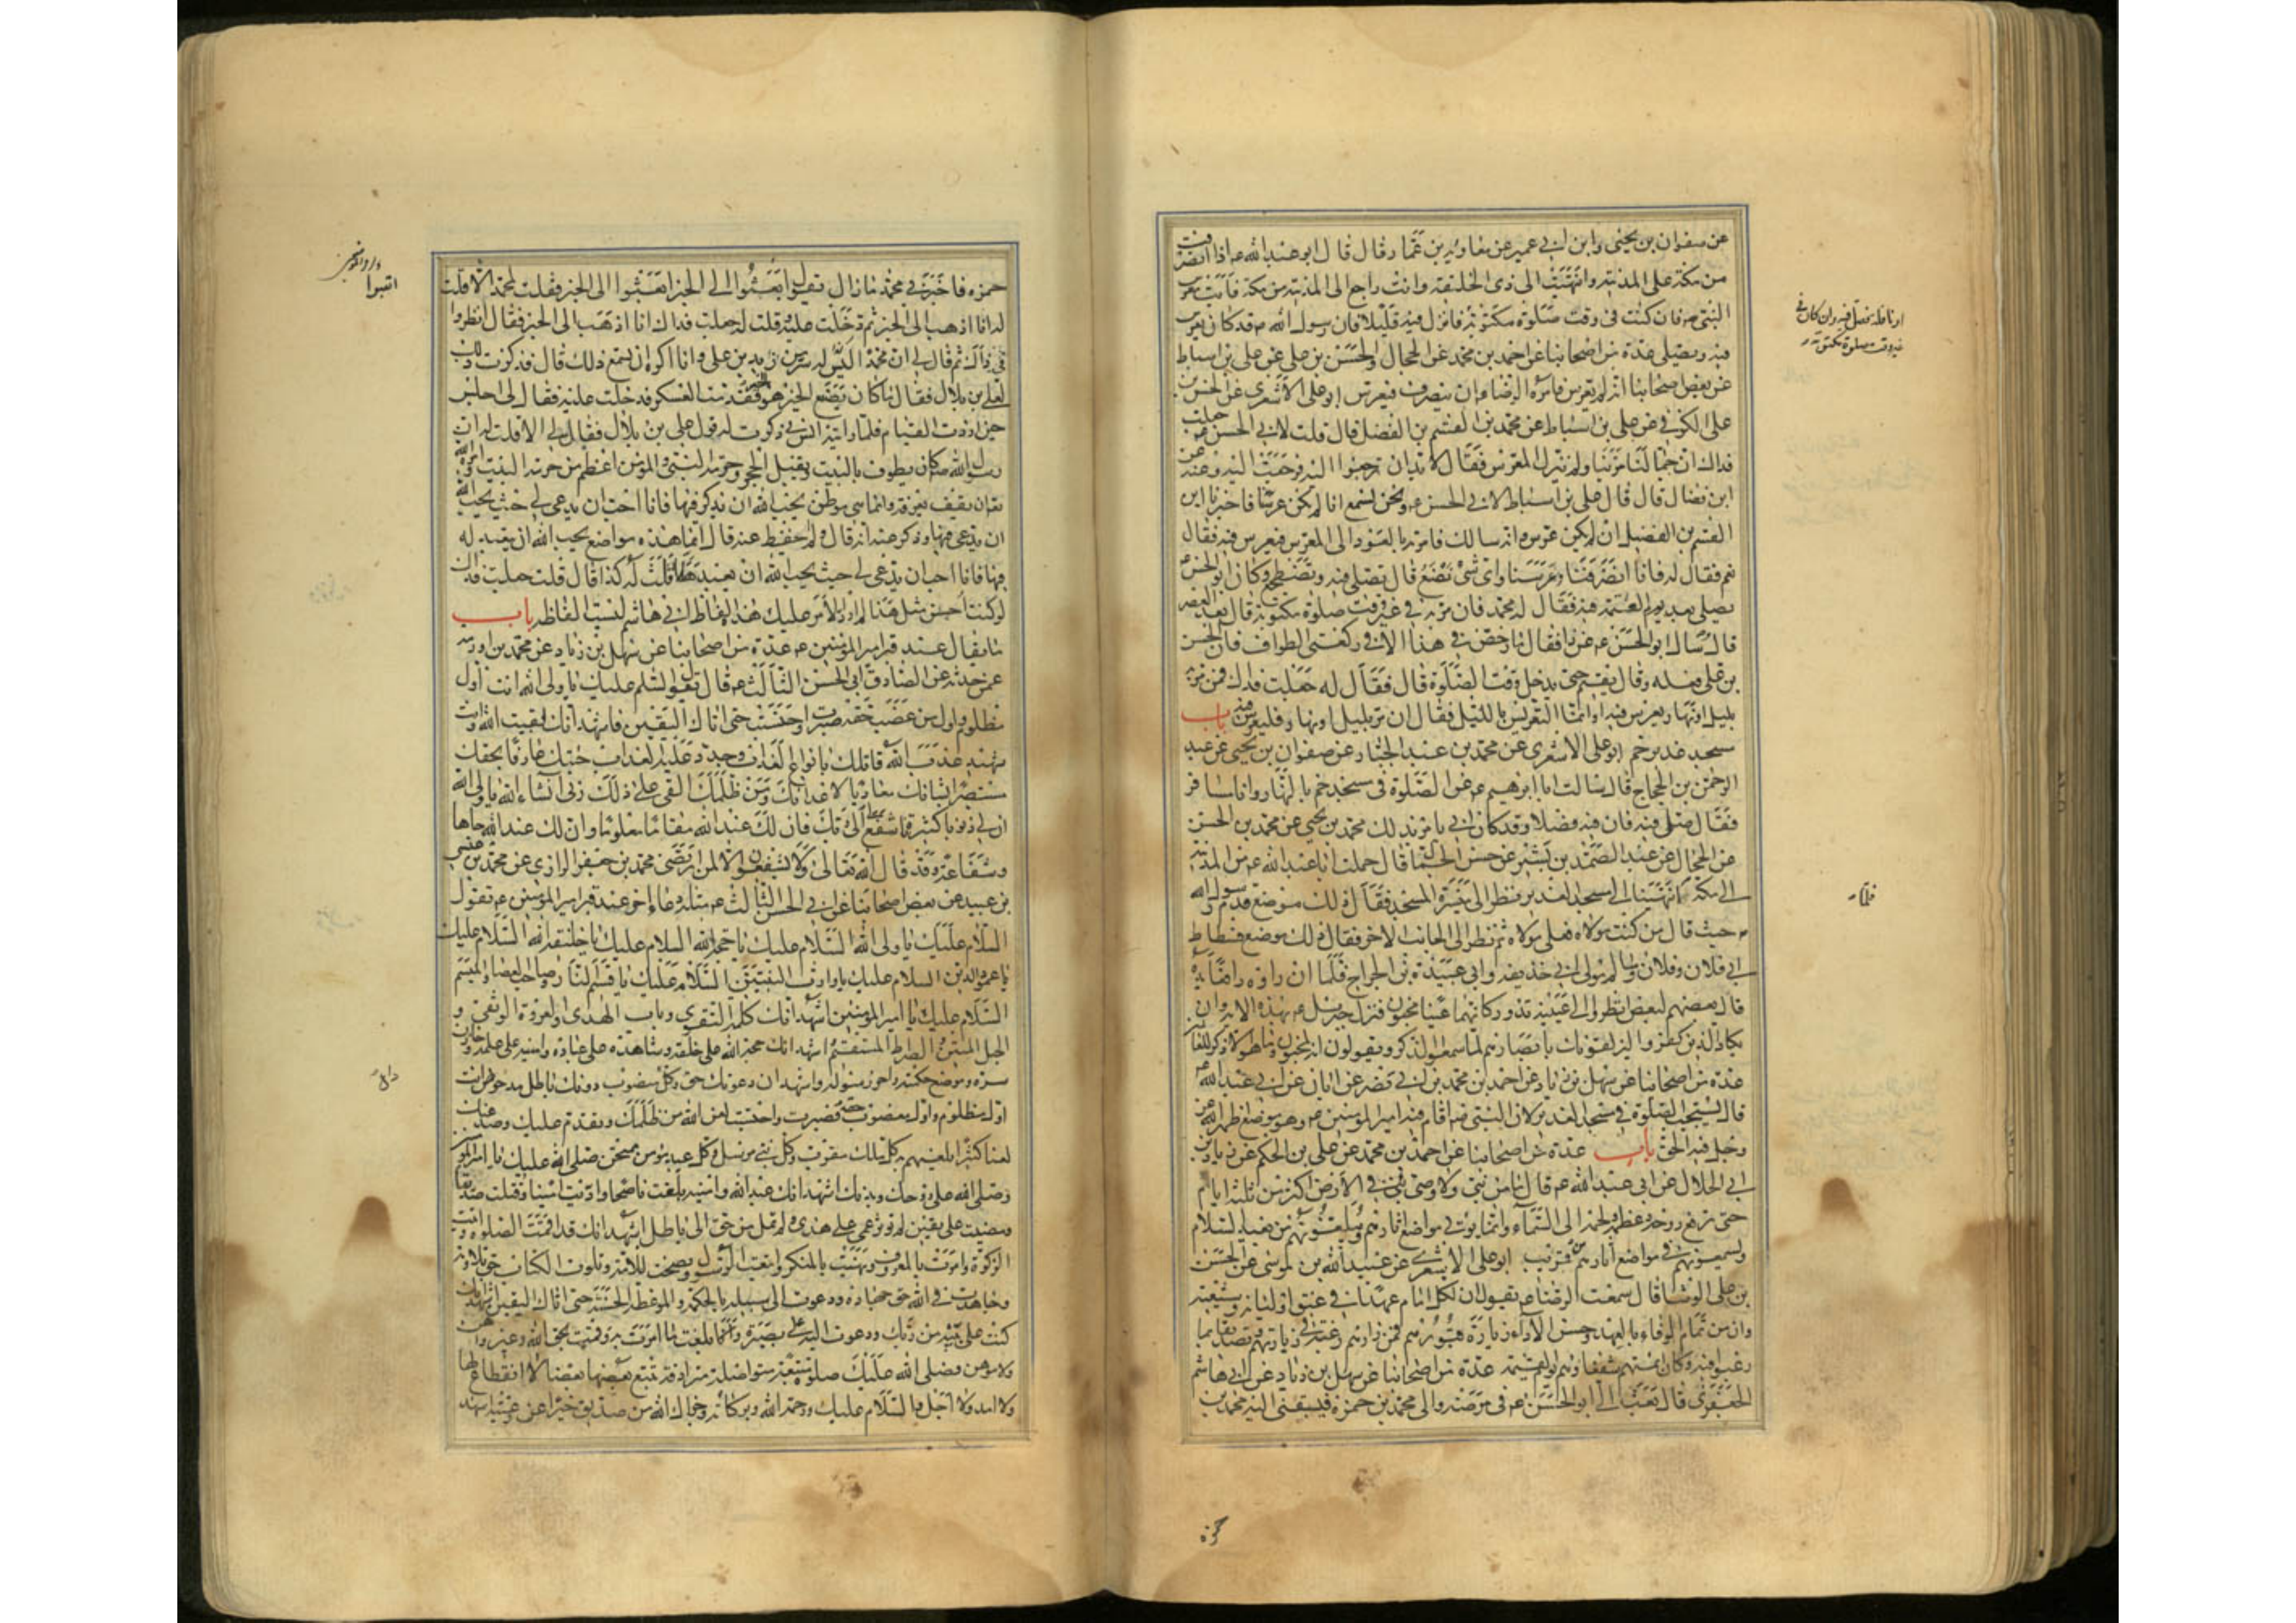 عن صفوان بن يحيى وابن ابي عمير عن معاوية بن عمار قال قال ابو عبد الله ع اذا انصرفت
من مكة على المدينة وانتهيت الى ذي الحليفة وانت راجع الى المدينة من مكة فائت معرس
النبي ص فان كنت في وقت صلوة مكتوبة فانزل فيه قليلا فان رسول الله ص قد كان يعرس
فيه ويصلى عدة من اصحابنا عن احمد بن محمد عن الحجال والحسن بن علي عن علي بن اسباط
عن بعض اصحابنا انه لم يعرس فامره الرضا ع ان ينصرف فيعرس ابو على الاشعرى عن الحسن بن
على الكوفى عن على بن اسباط عن محمد بن القسم بن الفضل قال قلت لابي الحسن ع جعلت
فداك ان جمالنا مر بنا ولم ينزل المعرس فقال لا بد ان ترجعوا اليه فرجعت اليه وعنه عن
ابن فضال قال قال على بن اسباط لابي الحسن ع ونحن نسمع انا لم نكن عرسنا فاخبرنا ابن
القسم بن الفضيل انه لم يكن عرس وانه سالك فامرته بالعود الى المعرس فيعرس فيه فقال
نعم فقال له فانا انصرفنا فعرسنا واى شئ نصنع قال تصلى فيه وتضطجع وكان ابو الحسن ع
يصلى بعد العتمة فيه فقال له محمد فان مر به في غير وقت صلوة مكتوبة قال بعد العصر
قال سال ابو الحسن ع عن ذا فقال ما رخص في هذا الا في ركعتى الطواف فان الحسن
بن على فعله وقال يقيم حتى يدخل وقت الصلوة قال فقلت له جعلت فداك فمن مر به
بليل او نهار يعرس فيه او انما التعريس بالليل فقال ان مر بليل او نهار فليعرس فيه باب
مسجد غدير خم ابو على الاشعرى عن محمد بن عبد الجبار عن صفوان بن يحيى عن عبد
الرحمن بن الحجاج قال سالت ابا ابرهيم ع عن الصلوة فى مسجد خم بالنهار وانا مسافر
فقال صل فيه فان فيه فضلا وقد كان ابي يامر بذلك محمد بن يحيى عن محمد بن الحسن
عن الحجال عن عبد الصمد بن بشير عن حسن الجمال قال حملت ابا عبد الله ع من المدينة
الى مكة انتهينا الى مسجد الغدير فنظر الى ميسرة المسجد فقال ذلك موضع قدم رسول الله
ص حيث قال من كنت مولاه فعلى مولاه ثم نظر الى الجانب الاخر فقال ذلك موضع فسطاط
ابي فلان وفلان وسالم مولى ابي حذيفة وابي عبيدة بن الجراح فلما ان راوه رافعا يديه
قال بعضهم لبعض انظروا الى عينيه تدور كانهما عينا مجنون فنزل جبرئيل ع بهذه الاية وان
يكاد الذين كفروا ليزلقونك بابصارهم لما سمعوا الذكر ويقولون انه لمجنون وما هو الا ذكر للعالمين
عدة من اصحابنا عن سهل بن زياد عن احمد بن محمد بن ابي نصر عن ابان عن ابي عبد الله ع
قال يستحب الصلوة في مسجد الغدير لان النبي ص اقام فيه امير المؤمنين ع وهو موضع اظهر الله عز
وجل فيه الحق باب عدة من اصحابنا عن احمد بن محمد عن على بن الحكم عن زياد بن
ابي الحلال عن ابى عبد الله ع قال ما من نبى ولا وصى يبقى في الارض اكثر من ثلثة ايام
حتى ترفع روحه وعظمه ولحمه الى السماء وانما يؤتى مواضع اثارهم ويبلغونهم من بعيد السلام
ويسمعونهم في مواضع آثارهم من قريب ابو على الاشعرى عن عبيد الله بن موسى عن الحسن
بن على الوشا قال سمعت الرضا ع يقول ان لكل امام عهدا في عنق اوليائه وشيعته
وان من تمام الوفاء بالعهد وحسن الاداء زيارة قبورهم فمن زارهم رغبة في زيارتهم وتصديقا بما
رغبوا فيه كان ائمتهم شفعاءهم يوم القيمة عدة من اصحابنا عن سهل بن زياد عن ابي هاشم
الجعفرى قال بعث الى ابو الحسن ع فى مرضه والى محمد بن حمزة فسبقنى اليه محمد بن
او نافلة فصل فيه وان كان في
غير وقت صلوة مكتوبة
فلما
حمزة
حمزه فاخبرني محمد ما زال يقول ابعثوا الى الحيز ابعثوا الى الحيز فقلت لمحمد الا قلت
له انا اذهب الى الحيز ثم دخلت عليه وقلت له جعلت فداك انا اذهب الى الحيز فقال انظروا
في ذاك ثم قال لي ان محمدا ليس له سر من زيد بن على وانا اكره ان يسمع ذلك قال فذكرت ذلك
لعلى بن بلال فقال ما كان يصنع الحيز هو الحيز فقدمت العسكر فدخلت عليه فقال لى اجلس
حين اردت القيام فلما رايته انس بي ذكرت له قول على بن بلال فقال لي الا قلت له ان
رسول الله ص كان يطوف بالبيت ويقبل الحجر وحرمة النبي والمؤمن اعظم من حرمة البيت وامره الله
ان يقف بعرفة وانما هي مواطن يحب الله ان يذكر فيها فانا احب ان يدعى لي حيث يحب الله
ان يدعى فيها وذكر عنه انه قال ولم احفظ عنه قال انما هذه مواضع يحب الله ان يتعبد له
فيها فانا احب ان يدعى لي حيث يحب الله ان يعبد هلا قلت له كذا قال قلت جعلت فداك
لو كنت احسن مثل هذا لم ارد الامر عليك هذه الفاظ ابي هاشم ليست الفاظه باب
ما يقال عند قبر امير المؤمنين ع عدة من اصحابنا عن سهل بن زياد عن محمد بن اورمه
عمن حدثه عن الصادق ابى الحسن الثالث ع قال تقول السلم عليك يا ولى الله انت اول
مظلوم واول من غصب حقه صبرت واحتسبت حتى اتاك اليقين فاشهد انك لقيت الله وانت
شهيد عذب الله قاتلك بانواع العذاب وجدد عليه العذاب جئتك عارفا بحقك
مستبصرا بشانك معاديا لاعدائك ومن ظلمك القى على ذلك ربى انشاء الله يا ولى الله
ان لي ذنوبا كثيرة فاشفع لى الى ربك فان لك عند الله مقاما معلوما وان لك عند الله جاها
وشفاعة وقد قال الله تعالى ولا يشفعون الا لمن ارتضى محمد بن جعفر الرازى عن محمد بن عيسى
بن عبيد عن بعض اصحابنا عن ابي الحسن الثالث ع مثله دعاء اخر عند قبر امير المؤمنين ع تقول
السلام عليك يا ولى الله السلام عليك يا حجة الله السلام عليك يا خليفة الله السلام عليك
يا عمود الدين السلام عليك يا وارث النبيين السلام عليك يا قسيم النار وصاحب العصا والميسم
السلام عليك يا امير المؤمنين اشهد انك كلمة التقوى وباب الهدى والعروة الوثقى و
الحبل المتين والصراط المستقيم اشهد انك حجة الله على خلقه وشاهده على عباده وامينه على علمه وخازن
سره وموضع حكمته واخو رسوله واشهد ان دعوتك حق وكل منصوب دونك باطل مدحوض انت
اول مظلوم واول مغصوب حقه فصبرت واحتسبت لعن الله من ظلمك وتقدم عليك وصد عنك
لعنا كثيرا يلعنهم به كل ملك مقرب وكل نبي مرسل وكل عبد مؤمن ممتحن صلى الله عليك يا امير المؤمنين
وصلى الله على روحك وبدنك اشهد انك عبد الله وامينه بلغت ناصحا واديت امينا وقتلت صديقا
ومضيت على يقين لم تؤثر عمى على هدى ولم تمل من حق الى باطل اشهد انك قد اقمت الصلوة واتيت
الزكوة وامرت بالمعروف ونهيت عن المنكر واتبعت الرسول ونصحت للامة وتلوت الكتاب حق تلاوته
وجاهدت في الله حق جهاده ودعوت الى سبيله بالحكمة والموعظة الحسنة حتى اتاك اليقين اشهد انك
كنت على بينة من ربك ودعوت اليه على بصيرة وبلغت ما امرت به وقمت بحق الله غير واهن
ولا موهن فصلى الله عليك صلوة متبعة متواصلة مترادفة تتبع بعضها بعضا لا انقطاع لها
ولا امد ولا اجل والسلام عليك ورحمة الله وبركاته وجزاك الله من صديق خيرا عن رعيته اشهد